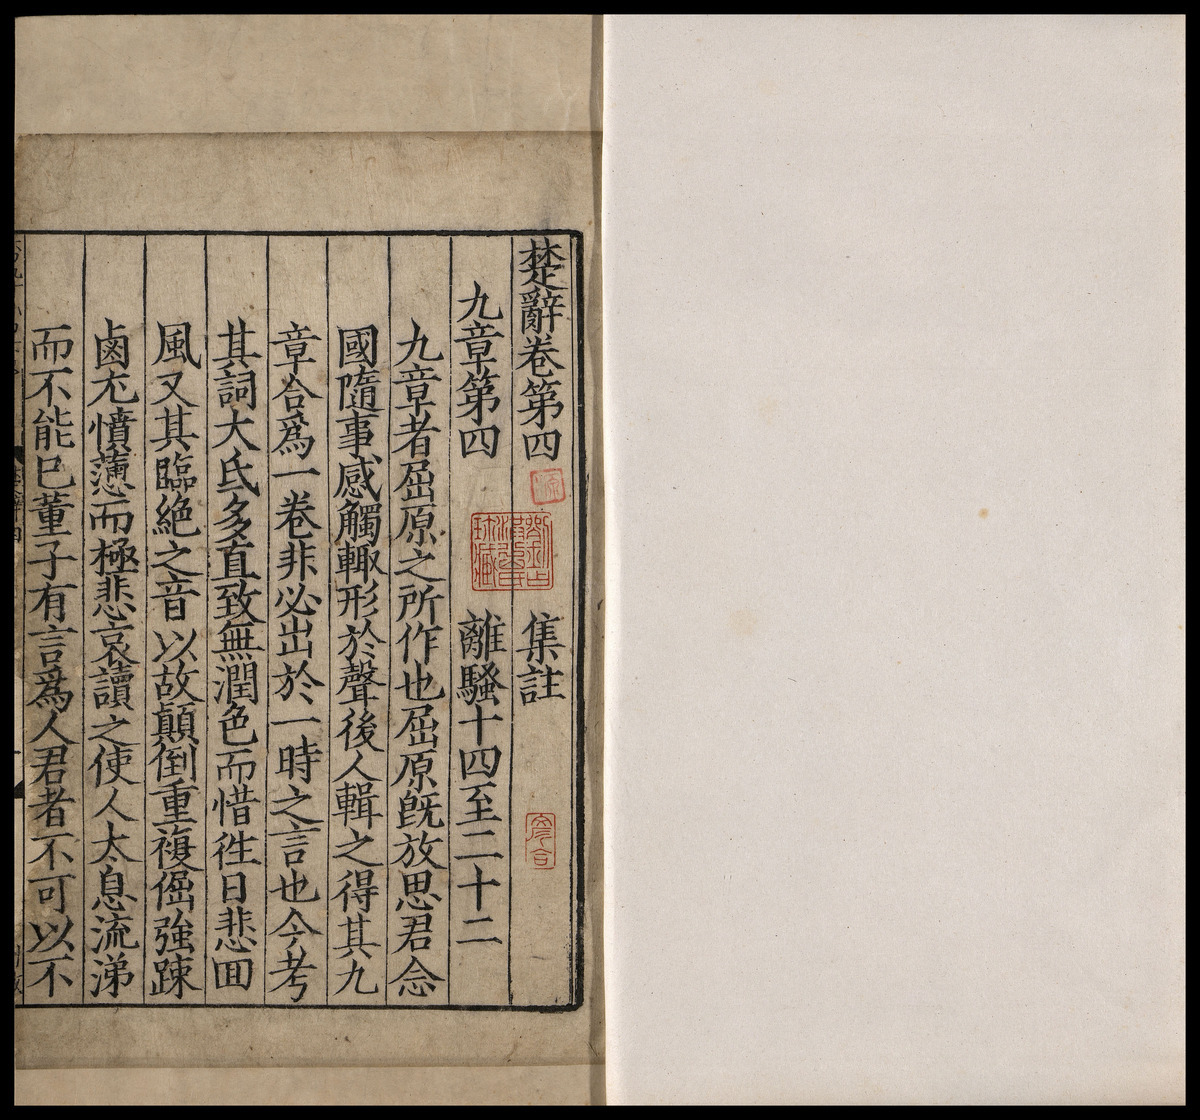 楚辭卷第四 集註
九章第四 離騷十四至二十二
九章者屈原之所作也屈原既放思君念
國隨事感觸輙形於聲後人輯之得其九
章合爲一卷非必出於一時之言也今考
其詞大氐多直致無潤色而惜徃日悲囬
風又其臨絶之音以故顛倒重複倔強踈
鹵尤憤懣而極悲哀讀之使人太息流涕
而不能已董子有言爲人君者不可以不